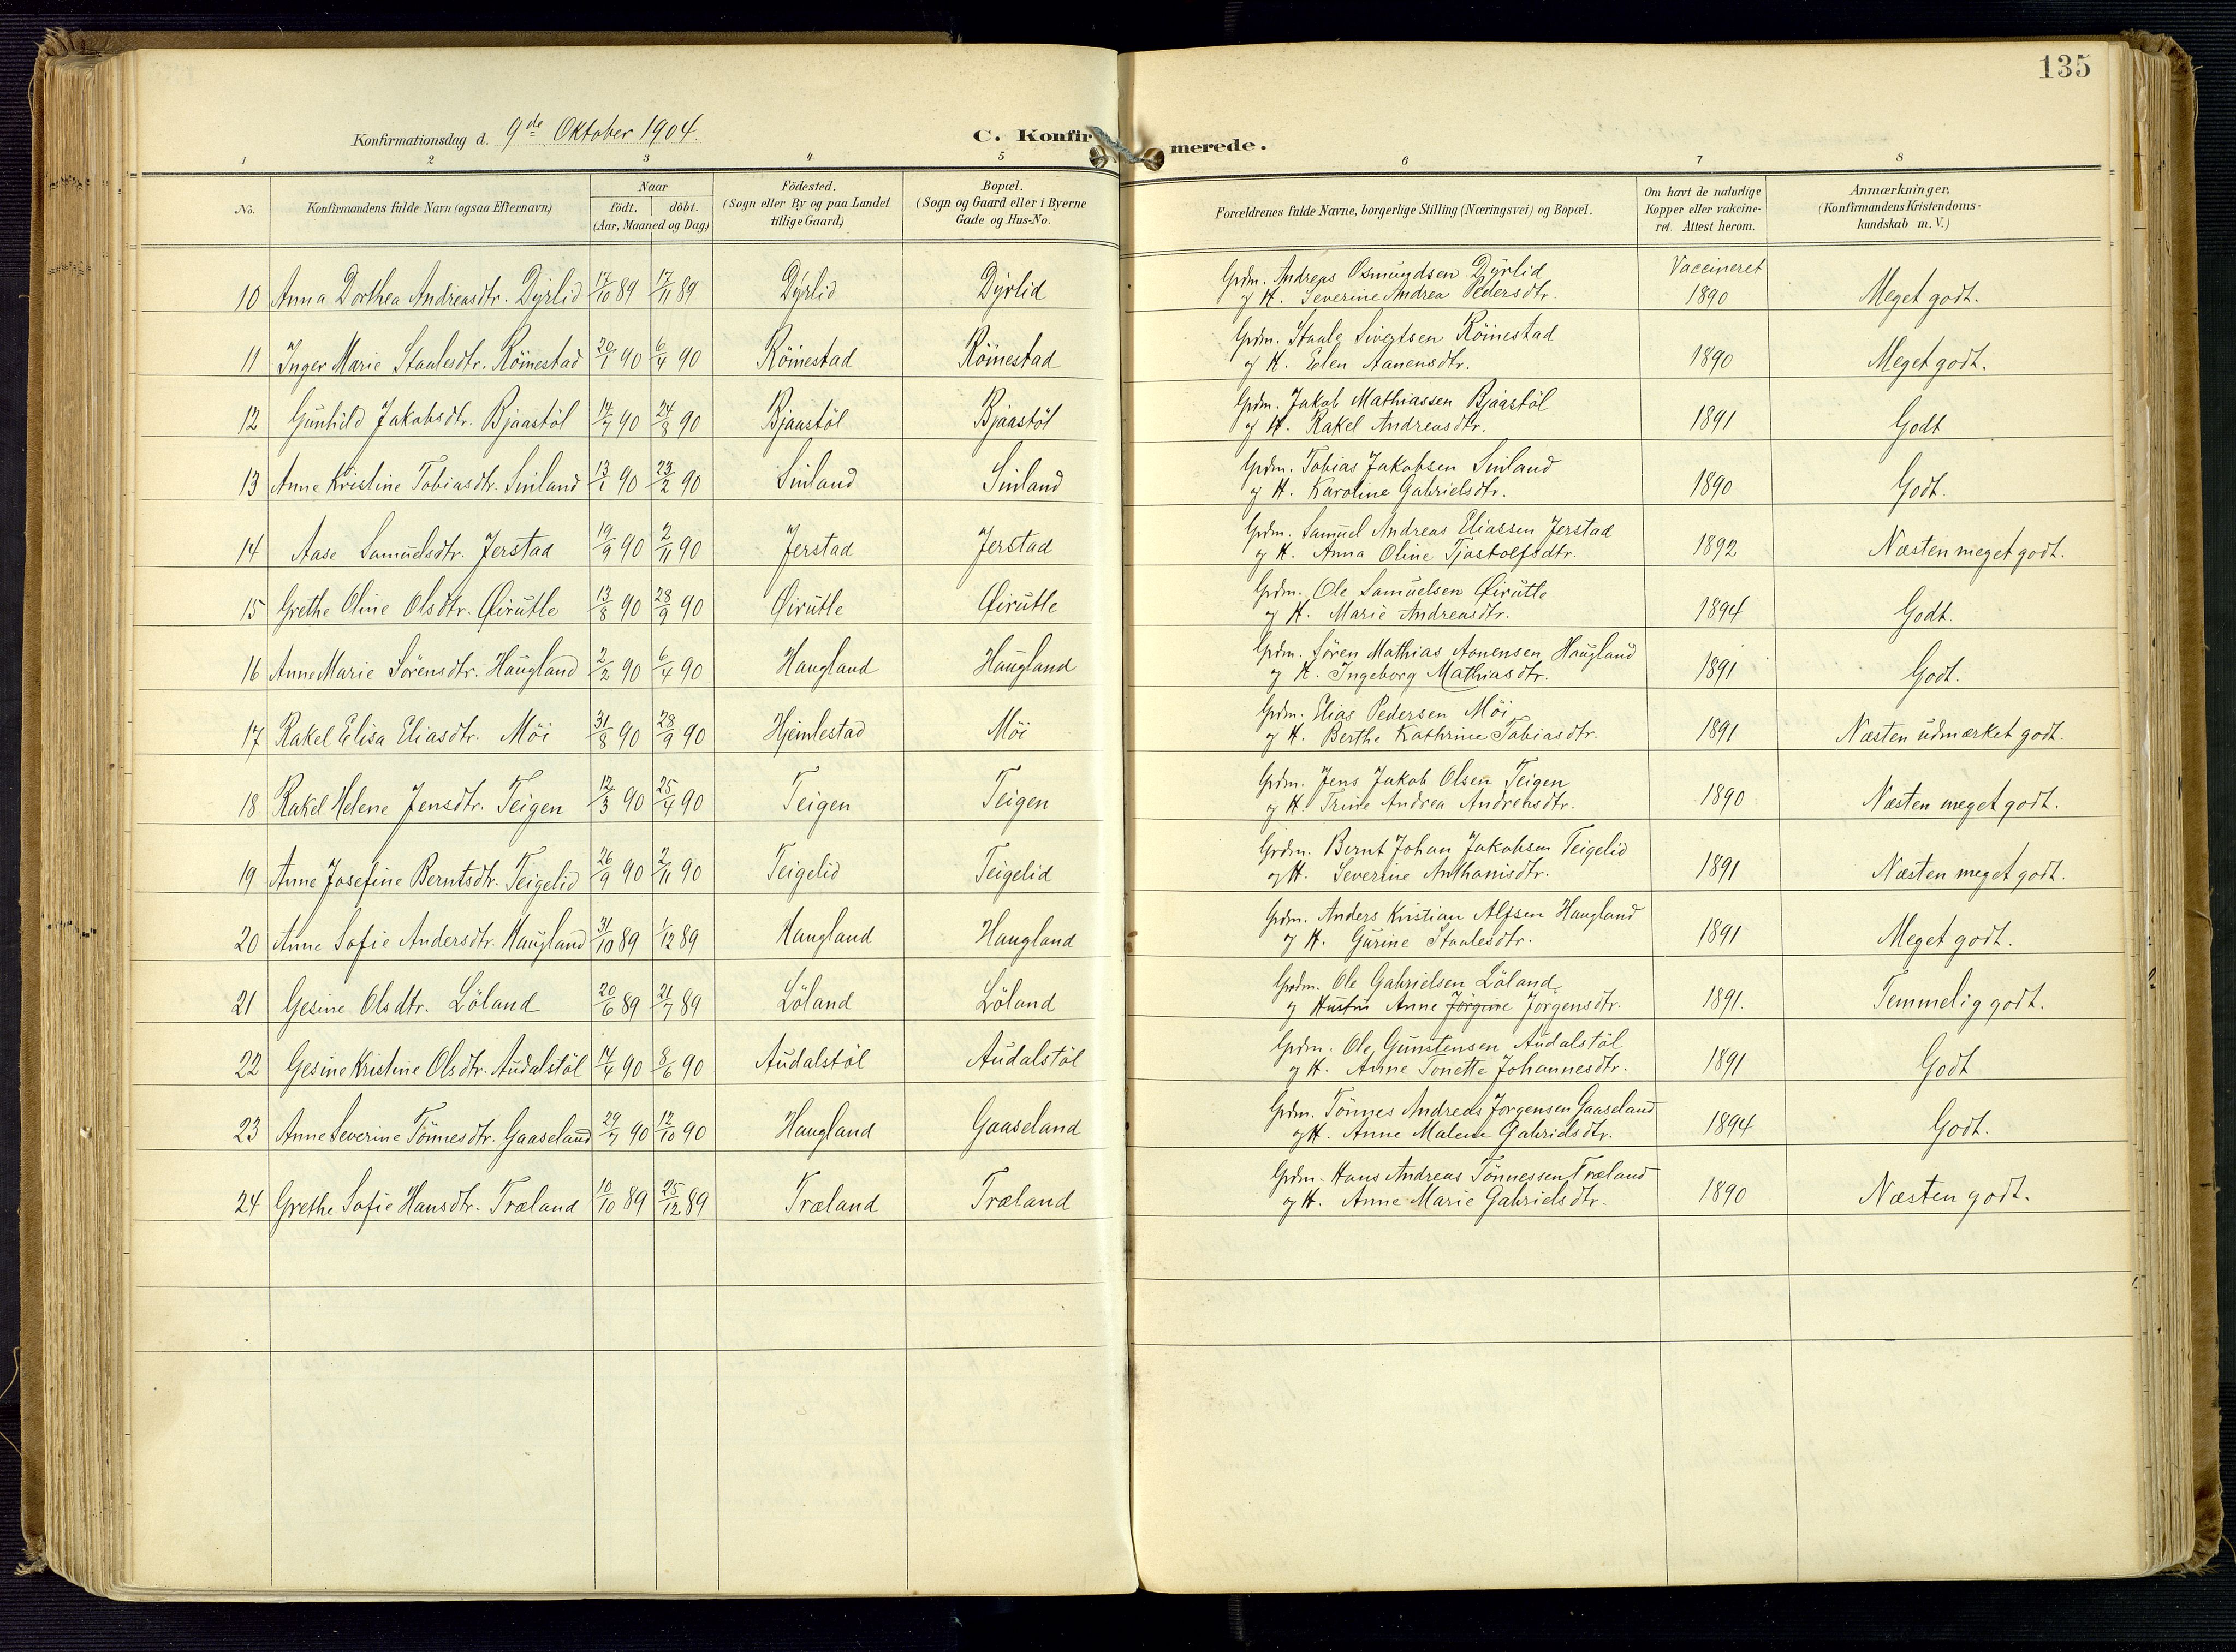 135
Konfirmationsdag d. 9de Oktober 1904.
C. Konfirmerede.
1 2 3 4 5 6 7 8
No. Konfirmandens fulde Navn (ogsaa Efternavn) Naar født. døbt. (Aar, Maaned og Dag) Födested. (Sogn eller By og paa Landet tillige Gaard) Bopæl. (Sogn og Gaard eller i Byerne Gade og Hus-No. Forældrenes fulde Navne, borgerlige Stilling (Næringsvei) og Bopæl. Om havt de naturlige Kopper eller vakcineret. Attest herom. Anmærkninger, (Konfirmandens Kristendomskundskab m. V.)
10 Anna Dorthea Andreasdtr. Dyrlid 17/10 89 17/11 89 Dyrlid Dyrlid Grdm. Andreas Osmundsen Dyrlid Vaccineret
og H. Severine Andrea Pedersdtr. 1890 Meget godt.
11 Inger Marie Staalesdtr. Röinestad 20/1 90 6/4 90 Röinestad Röinestad Grdm. Staale Sivertsen Röinestad
og H. Elen Aanensdtr. 1890 Meget godt.
12 Gunhild Jakobsdtr. Bjaastöl 14/7 90 24/8 90 Bjaastöl Bjaastöl Grdm. Jakob Mathiassen Bjaastöl
og H. Rakel Andreasdtr. 1891 Godt
13 Anne Kristine Tobiasdtr. Sinland 13/1 90 23/2 90 Sinland Sinland Grdm. Tobias Jakobsen Sinland
og H. Karoline Gabrielsdtr. 1890 Godt.
14 Aase Samuelsdtr. Jerstad 19/9 90 2/11 90 Jerstad Jerstad Grdm. Samuel Andreas Eliassen Jerstad
og H. Anna Oline Tjostolfsdtr. 1892 Næsten meget godt.
15 Grethe Oline Olsdtr. Qvirutle 13/8 90 28/9 90 Qvirutle Qvirutle Grdm. Ole Samuelsen Qvirutle
og H. Marie Andreasdtr. 1894 Godt.
16 Anne Marie Sörensdtr. Haugland 2/2 90 6/4 90 Haugland Haugland Grdm. Sören Mathias Aanensen Haugland
og H. Ingeborg Mathiasdtr. 1891 Godt.
17 Rakel Elisa Eliasdtr. Möi 31/8 90 28/9 90 Heimlestad Möi Grdm. Elias Pedersen Möi
og H. Berthe Kathrine Tobiasdtr. 1891 Næsten udmærket godt.
18 Rakel Helene Jensdtr. Teigen 12/3 90 25/4 90 Teigen Teigen Grdm. Jens Jakob Olsen Teigen
og H. Trine Andrea Andreasdtr. 1890 Næsten meget godt.
19 Anne Josefine Berntsdtr. Teigelid 26/9 90 2/11 90 Teigelid Teigelid Grdm. Bernt Johan Jakobsen Teigelid
og H. Severine Anthonisdtr. 1891 Næsten meget godt.
20 Anne Sofie Andersdtr. Haugland 31/10 89 1/12 89 Haugland Haugland Grdm. Anders Kristian Alfsen Haugland
og H. Gurine Staalesdtr. 1891 Meget godt.
21 Gesine Olsdtr. Löland 20/6 89 21/7 89 Löland Löland Grdm. Ole Gabrielsen Löland
og Hustru Anne Jörgine Jörgensdtr. 1891. Temmelig godt.
22 Gesine Kristine Olsdtr. Audalstöl 14/4 90 8/6 90 Audalstöl Audalstöl Grdm. Ole Gunstensen Audalstöl
og H. Anne Tonette Johannesdtr. 1891 Godt
23 Anne Severine Tönnesdtr. Gaaseland 29/7 90 12/10 90 Haugland Gaaseland Grdm. Tönnes Andreas Jorgensen Gaaseland
og H. Anne Malene Gabrielsdtr. 1894 Godt.
24 Grethe Sofie Hansdtr. Træland 10/10 89 25/12 89 Træland Træland Grdm. Hans Andreas Tönnessen Træland
og H. Anne Marie Gabrielsdtr. 1890 Næsten godt.